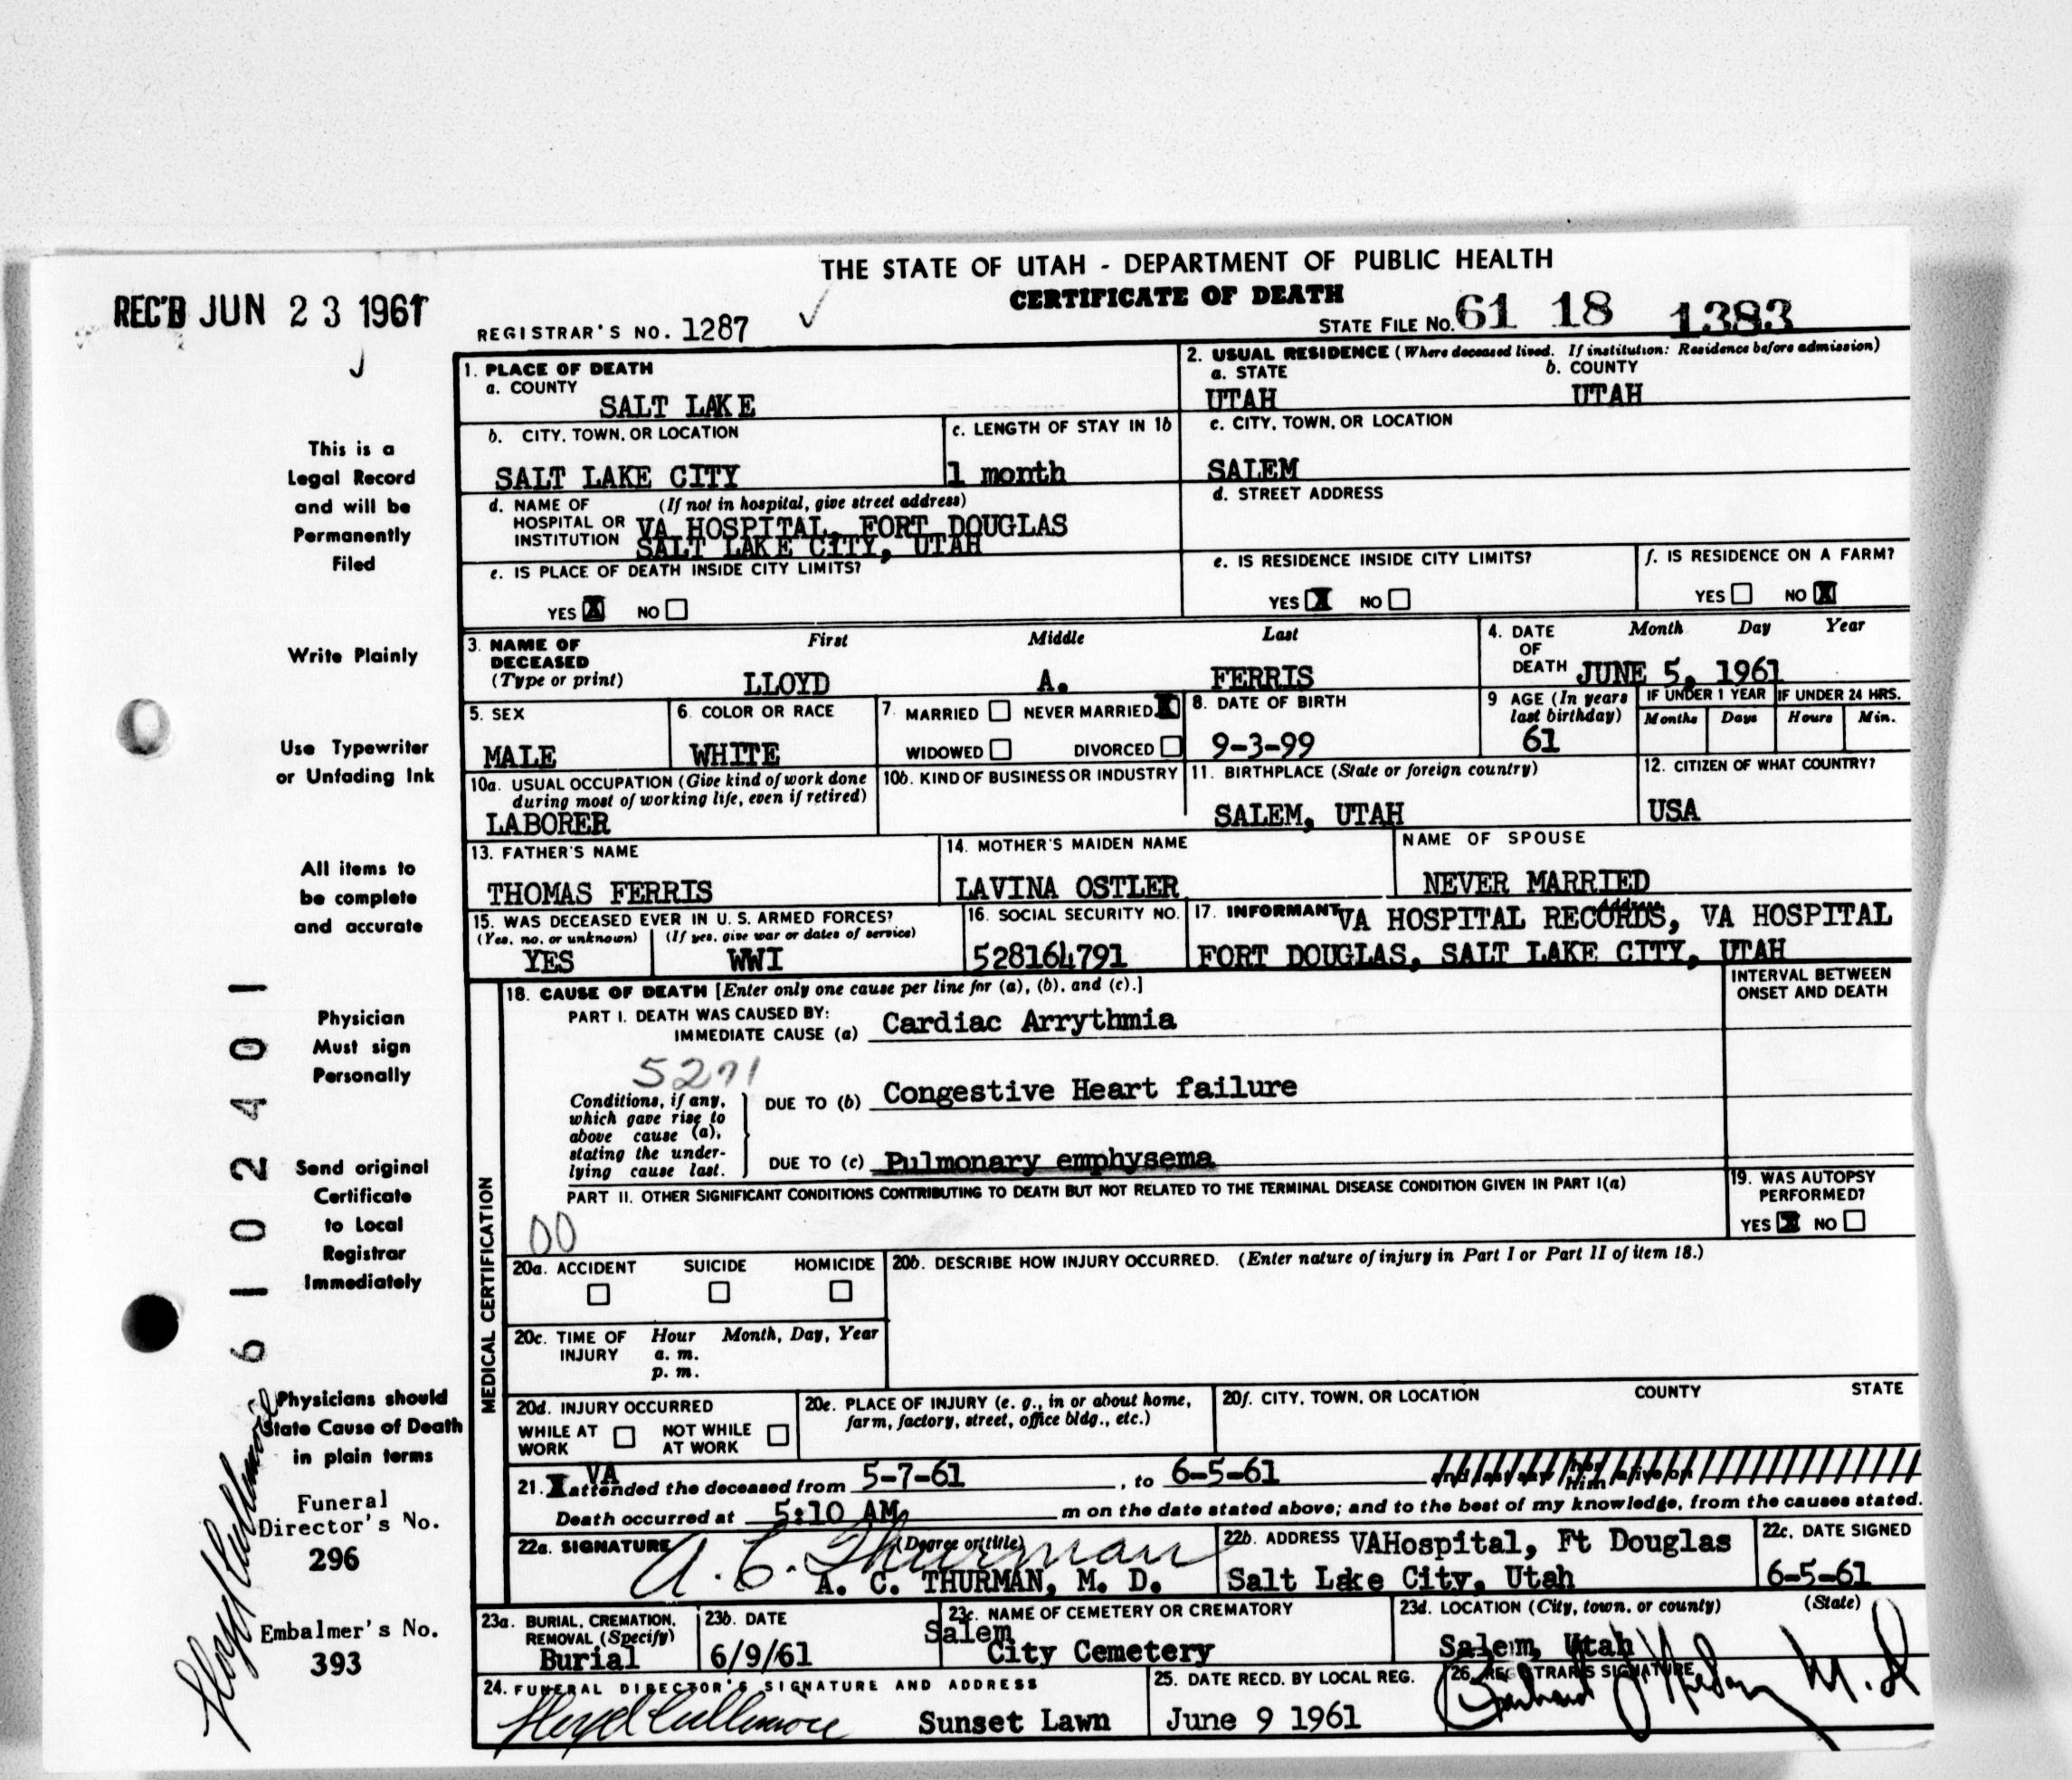 THE STATE OF UTAH - DEPARTMENT OF PUBLIC HEALTH
CERTIFICATE OF DEATH
REC'D JUN 23 1961
REGISTRAR'S NO. 1287
STATE FILE NO. 61 18 1383
1. PLACE OF DEATH
a. COUNTY
SALT LAKE
2. USUAL RESIDENCE (Where deceased lived. If institution: Residence before admission)
a. STATE
UTAH
b. COUNTY
UTAH
b. CITY, TOWN, OR LOCATION
SALT LAKE CITY
c. LENGTH OF STAY IN 1b
1 month
c. CITY, TOWN, OR LOCATION
SALEM
d. NAME OF (If not in hospital, give street address)
HOSPITAL OR
INSTITUTION
VA HOSPITAL, FORT DOUGLAS
SALT LAKE CITY, UTAH
d. STREET ADDRESS
e. IS PLACE OF DEATH INSIDE CITY LIMITS?
YES X NO
e. IS RESIDENCE INSIDE CITY LIMITS?
YES X NO
f. IS RESIDENCE ON A FARM?
YES NO X
3. NAME OF
DECEASED
(Type or print)
First Middle Last
LLOYD A. FERRIS
4. DATE
OF
DEATH
Month Day Year
JUNE 5, 1961
5. SEX
MALE
6. COLOR OR RACE
WHITE
7. MARRIED NEVER MARRIED X
WIDOWED DIVORCED
8. DATE OF BIRTH
9-3-99
9 AGE (In years
last birthday)
61
IF UNDER 1 YEAR
Months Days
IF UNDER 24 HRS.
Hours Min.
10a. USUAL OCCUPATION (Give kind of work done
during most of working life, even if retired)
LABORER
10b. KIND OF BUSINESS OR INDUSTRY
11. BIRTHPLACE (State or foreign country)
SALEM, UTAH
12. CITIZEN OF WHAT COUNTRY?
USA
13. FATHER'S NAME
THOMAS FERRIS
14. MOTHER'S MAIDEN NAME
LAVINA OSTLER
NAME OF SPOUSE
NEVER MARRIED
15. WAS DECEASED EVER IN U. S. ARMED FORCES?
(Yes, no, or unknown) (If yes, give war or dates of service)
YES WWI
16. SOCIAL SECURITY NO.
528164791
17. INFORMANT Address
VA HOSPITAL RECORDS, VA HOSPITAL
FORT DOUGLAS, SALT LAKE CITY, UTAH
MEDICAL CERTIFICATION
18. CAUSE OF DEATH [Enter only one cause per line for (a), (b), and (c).]
INTERVAL BETWEEN
ONSET AND DEATH
PART I. DEATH WAS CAUSED BY:
IMMEDIATE CAUSE (a) Cardiac Arrythmia
5271
Conditions, if any,
which gave rise to
above cause (a),
stating the under-
lying cause last.
DUE TO (b) Congestive Heart failure
DUE TO (c) Pulmonary emphysema
PART II. OTHER SIGNIFICANT CONDITIONS CONTRIBUTING TO DEATH BUT NOT RELATED TO THE TERMINAL DISEASE CONDITION GIVEN IN PART I(a)
00
19. WAS AUTOPSY
PERFORMED?
YES X NO
20a. ACCIDENT SUICIDE HOMICIDE
20b. DESCRIBE HOW INJURY OCCURRED. (Enter nature of injury in Part I or Part II of item 18.)
20c. TIME OF
INJURY
Hour Month, Day, Year
a. m.
p. m.
20d. INJURY OCCURRED
WHILE AT
WORK
NOT WHILE
AT WORK
20e. PLACE OF INJURY (e. g., in or about home,
farm, factory, street, office bldg., etc.)
20f. CITY, TOWN, OR LOCATION COUNTY STATE
21. X VA attended the deceased from 5-7-61, to 6-5-61 and last saw her him alive on
Death occurred at 5:10 AM m on the date stated above; and to the best of my knowledge, from the causes stated.
22a. SIGNATURE (Degree or title)
A. C. Thurman
A. C. THURMAN, M. D.
22b. ADDRESS VAHospital, Ft Douglas
Salt Lake City, Utah
22c. DATE SIGNED
6-5-61
23a. BURIAL, CREMATION,
REMOVAL (Specify)
Burial
23b. DATE
6/9/61
23c. NAME OF CEMETERY OR CREMATORY
Salem
City Cemetery
23d. LOCATION (City, town, or county) (State)
Salem, Utah
24. FUNERAL DIRECTOR'S SIGNATURE AND ADDRESS
Floyd Cullimore Sunset Lawn
25. DATE RECD. BY LOCAL REG.
June 9 1961
26. REGISTRAR'S SIGNATURE
M.D
This is a
Legal Record
and will be
Permanently
Filed
Write Plainly
Use Typewriter
or Unfading Ink
All items to
be complete
and accurate
Physician
Must sign
Personally
Send original
Certificate
to Local
Registrar
Immediately
Physicians should
State Cause of Death
in plain terms
Funeral
Director's No.
296
Embalmer's No.
393
6102401
Floyd Cullimore